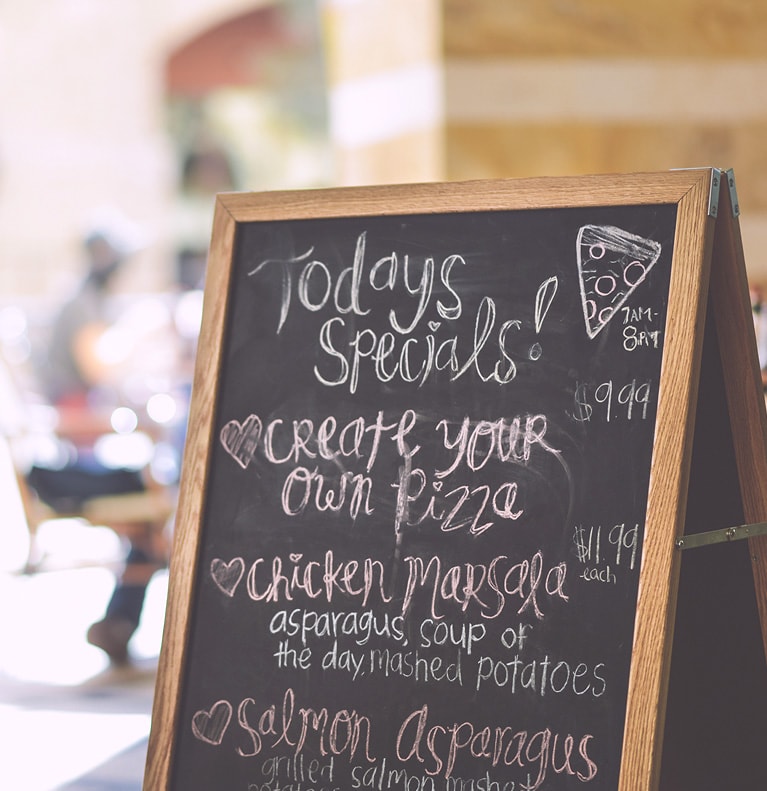 Todays
Specials!
7AM-
8PM
$9.99
Create your
own Pizza
$11.99
each
Chicken Marsala
asparagus, soup of
the day, mashed potatoes
Salmon Asparagus
grilled salmon mashed
potatoes